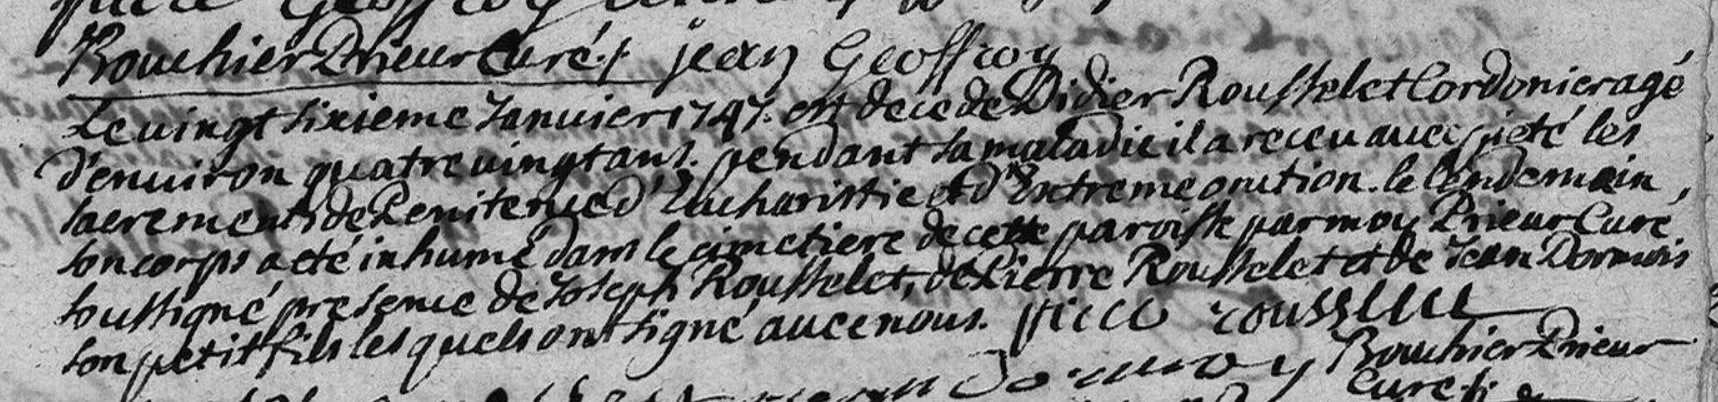 Rouhier Prieur Curé./. jean Geoffroy
Le vingt sixieme Janvier 1747. est decede Didier Rousselet Cordonier agé
d'environ quatre vingt ans. pendant sa maladie il a receu avec pieté les
sacrements de Penitence d'Eucharistie et d'Extreme onction. le lendemain,
son corps a eté inhumé dans le cimetiere de cette paroisse par moy Prieur Curé
soussigné presence de Joseph Rousselet, de Pierre Rousselet et de Jean Dormois
son petit fils les quels ont signé avec nous. piere rousselet
Rouhier Prieur
Curé